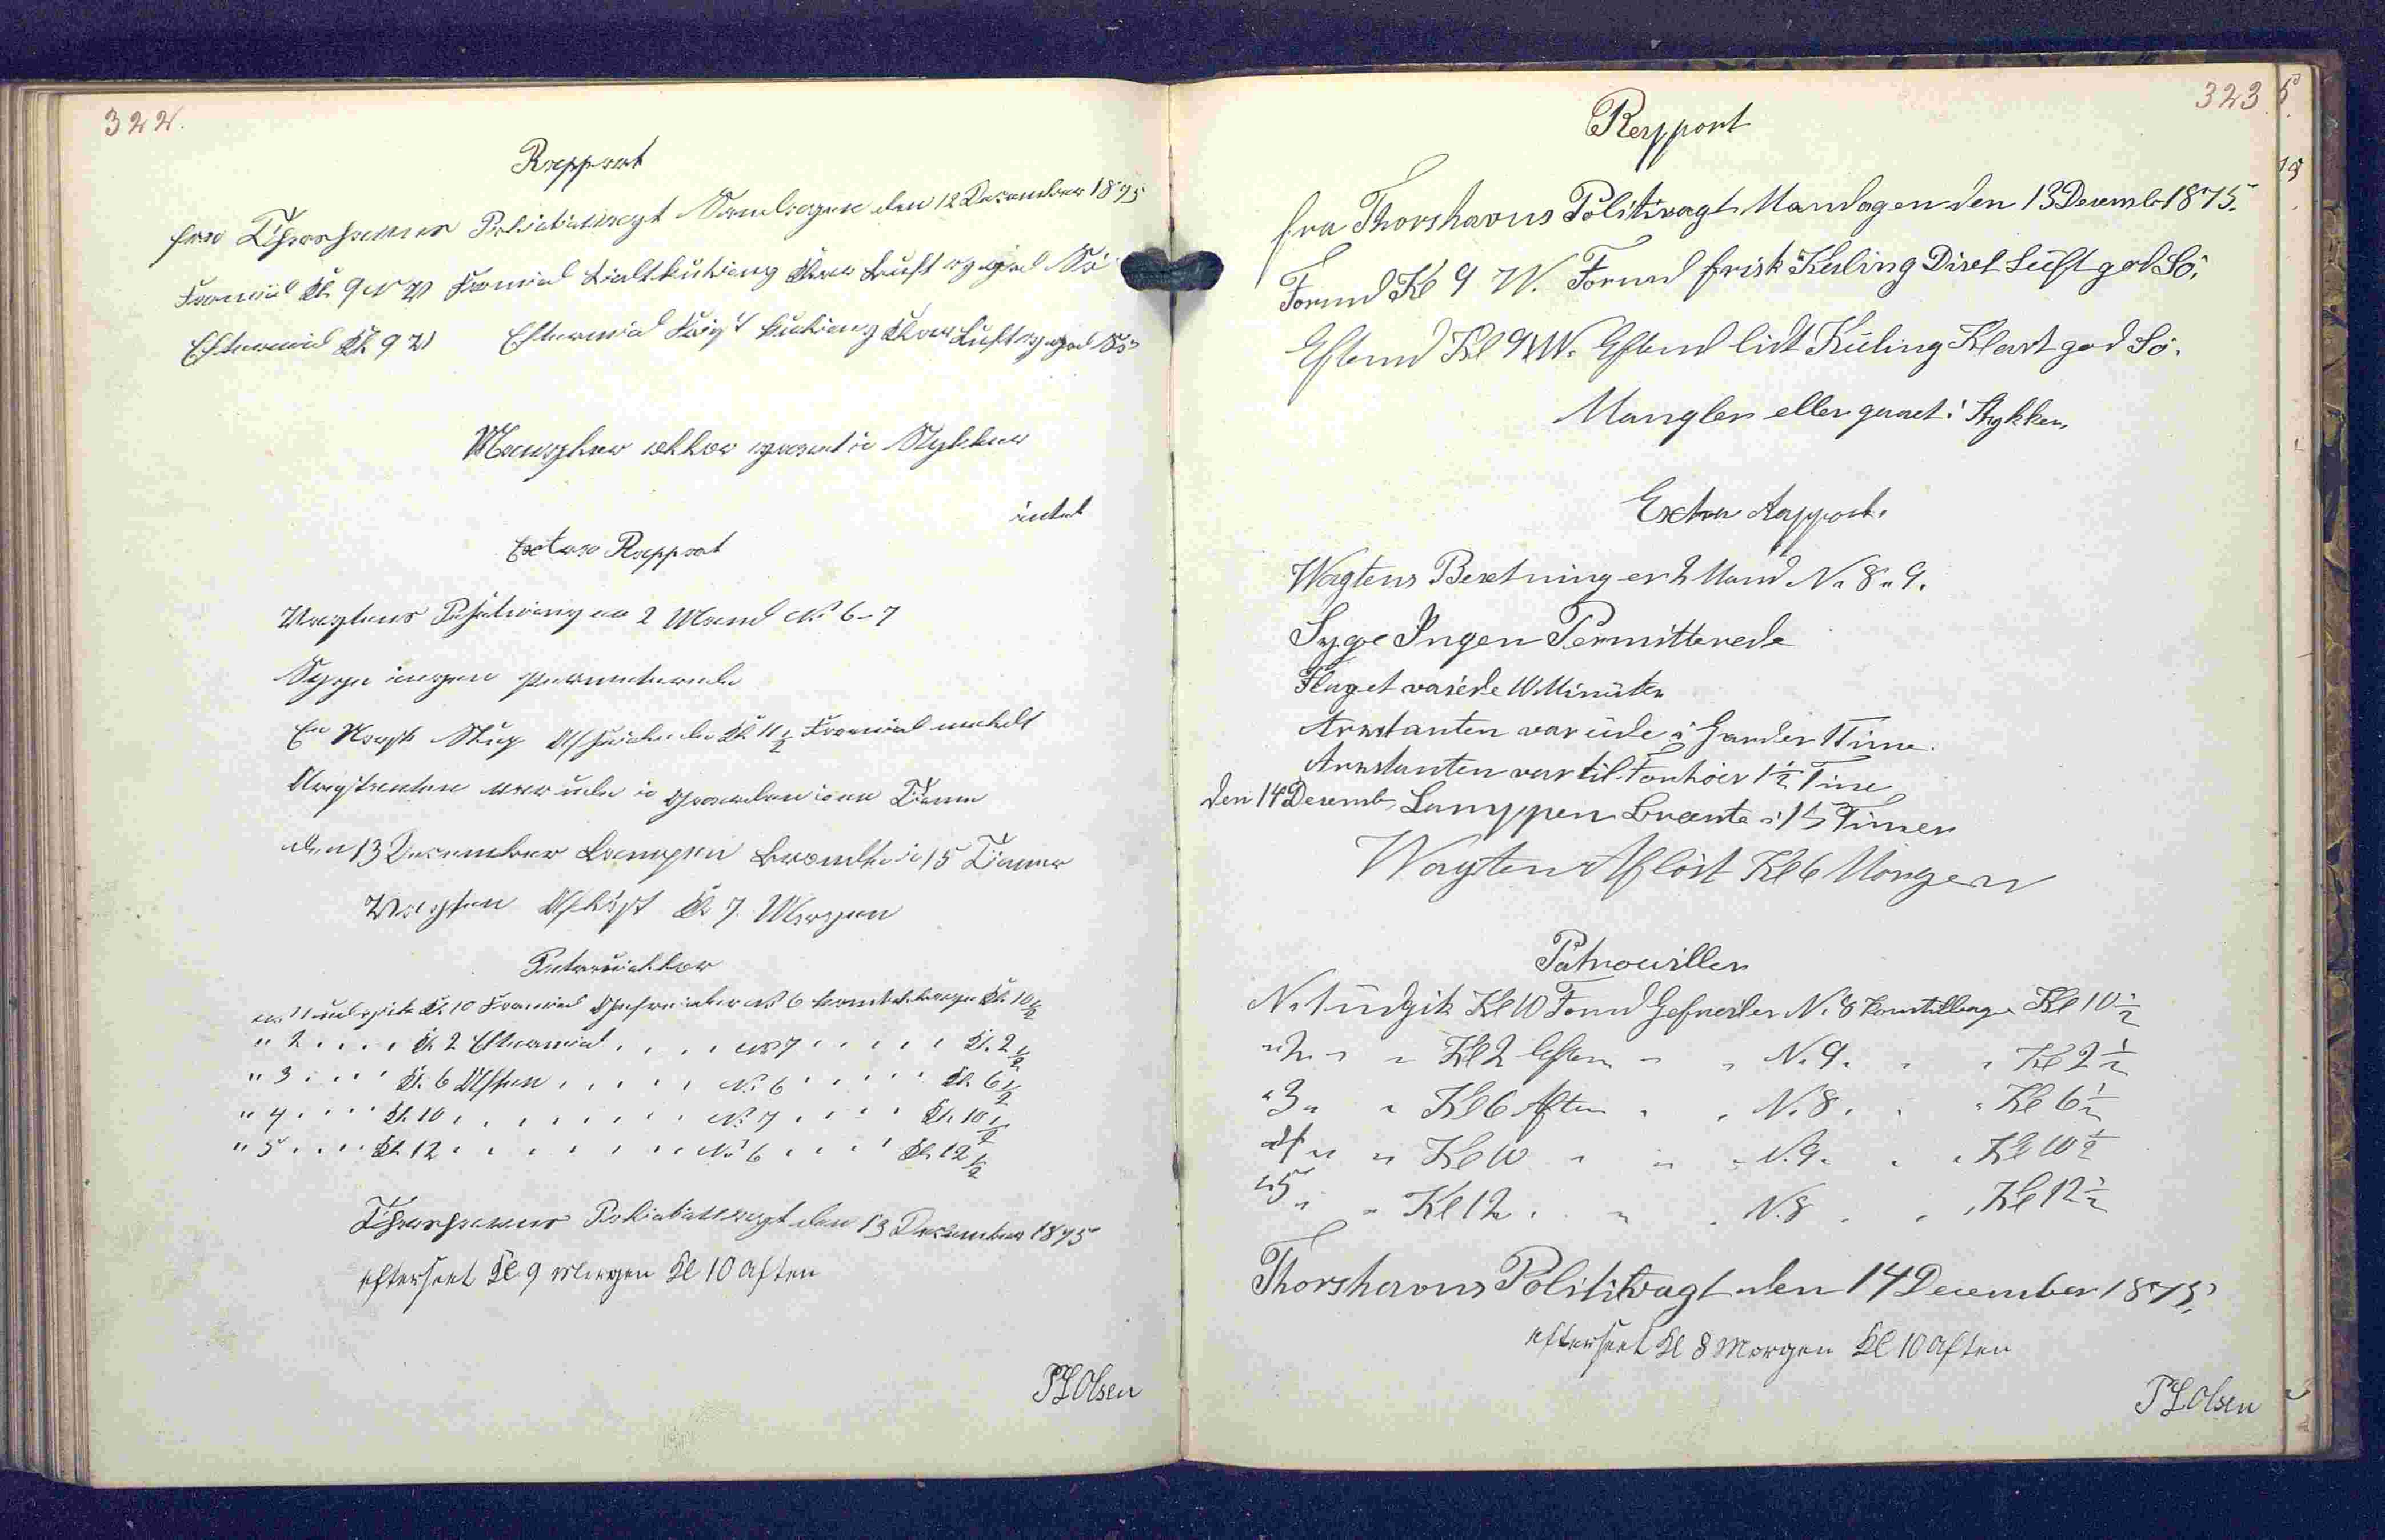 322.
Rapport
fra Thorshavns Politivagt Søndagen den 12 December 1875
Formid Kl. 9 N V Formid Kuling Klar Luft og god Sö
Eftermid Kl. 9 V Eftermid Kuling Klar Luft og god Sö
Mangler eller gaaet i Stykker
intet
Extra Rapport
Vagtens Besetning er 2 Mand No 6-7
Syge ingen permiterede
En Norsk Slup Kl. 11 1/2 Formid
Arrestanten var ude i Gaarden i en Time
den 13 December Lampen brændte i 15 Timer
Vagten Aflöst Kl. 7. Morgen
Patrouiller
No 1 udgik Kl. 10 Formid Gefreider No 6 kom tilbage Kl. 10 1/2
" 2 . . . . Kl. 2 Eftermid . . . . No 7 . . . . . Kl. 2 1/2
" 3 . . . . Kl. 6 Aften . . . . . No 6 . . . . . Kl. 6 1/2
" 4 . . . . Kl. 10 . . . . . . . . No 7 . . . . Kl. 10 1/2
" 5 . . . . Kl. 12 . . . . . . . No 6 . . . . Kl. 12 1/2
Thorshavns Politivagt den 13 December 1875
efterseet Kl 9 Morgen Kl 10 Aften
PLOlsen
323
Rapport
fra Thorshavns Politivagt Mandagen den 13 Decemb 1875.
Formd Kl 9 V. Formd frisk Kuling Diset Luft god Sö,
Eftemd Kl 9 NW. Eftemd lidt Küling Klart god Sö.
Mangler eller gaaet i Stykker,
Extra Rapport.
Wagtens Besetning er 2 Mand N. 8 " 9.
Syge Ingen Permitterede
Flaget vaiede 10 Minüter
Arrestanten var üde i Gaarden 1 Time.
Arrestanten var til Forhöer 1 1/2 Time
den 14 Decemb, Lamppen Brænte i 15 Timer
Wagten Aflöst Kl 6 Morgen
Patrouiller
N. 1 üdgik Kl 10 Formd Gefreider N. 8 kom tilbage Kl 10 1/2
" 2 " " Kl 2 Eftem " " N. 9. " " Kl 2 1/2
" 3 " " Kl 6 Aften " " N. 8. " " Kl 6 1/2
" 4 " " Kl 10 " " " N. 9. " " Kl 10 1/2
" 5 " " Kl 12 " " " N. 8 " " Kl 12 1/2
Thorshavns Politivagt den 14 December 1875,
efterseet Kl 8 Morgen Kl 10 Aften
PLOlsen